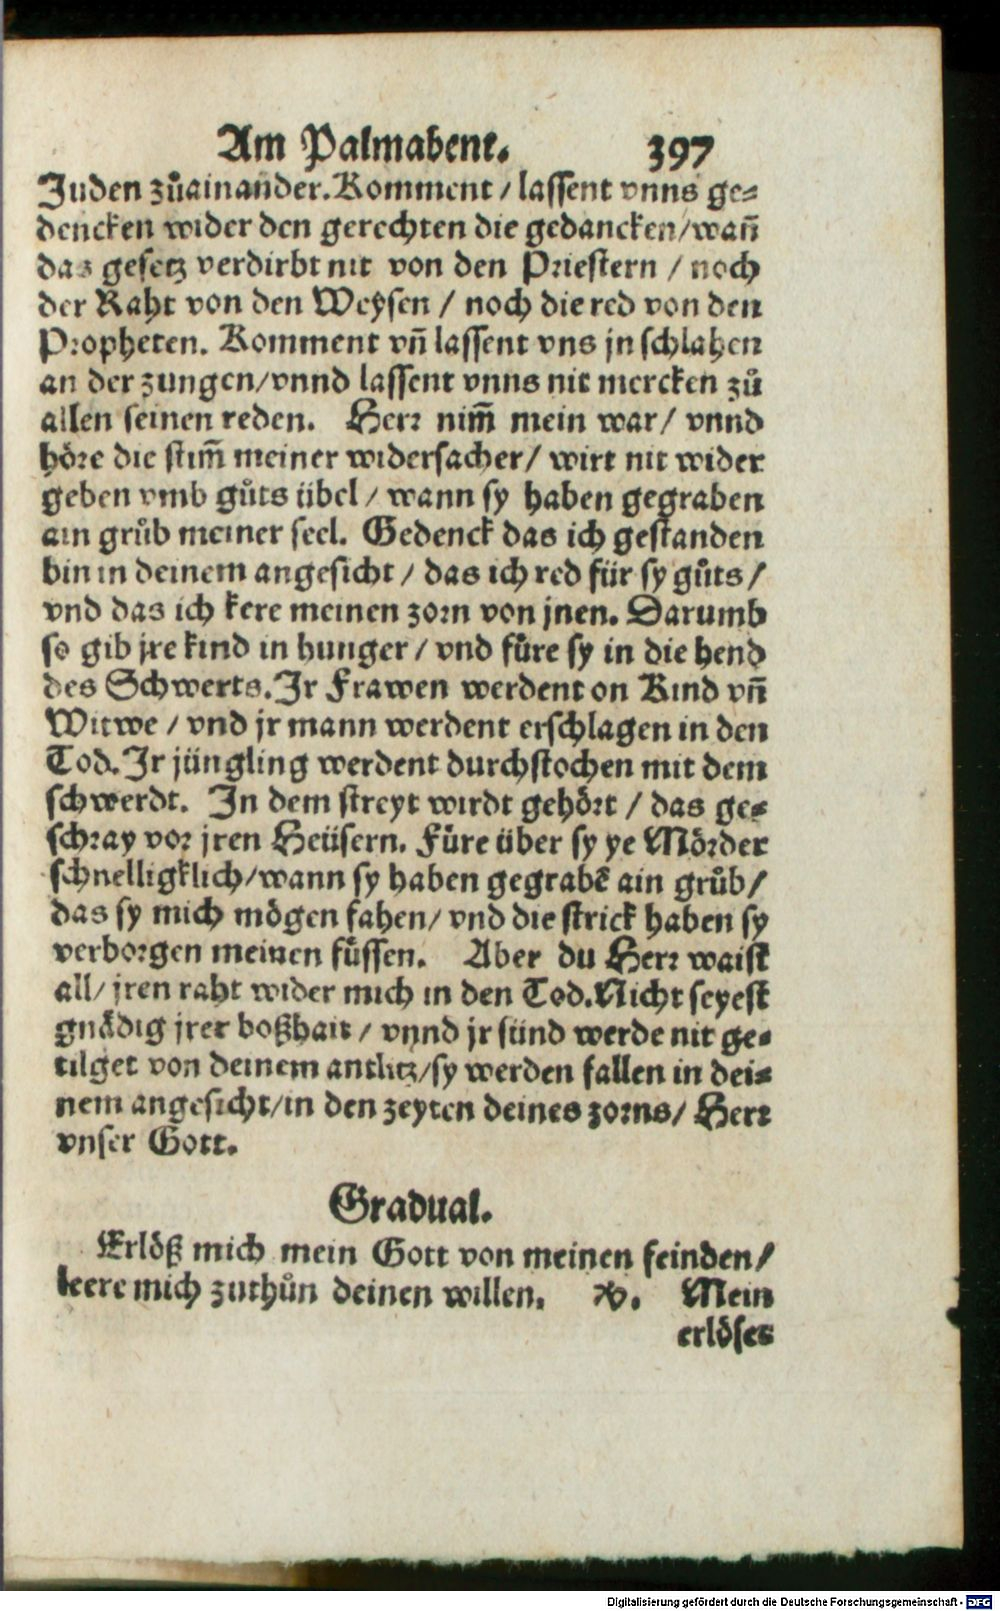 Am Palmabent. 397
Juden zůainander. Komment / lassent vnns ge-
dencken wider den gerechten die gedancken / wañ
das gesetz verdirbt nit von den Priestern / noch
der Raht von den Weysen / noch die red von den
Propheten. Komment vñ lassent vns jn schlahen
an der zungen / vnnd lassent vnns nit mercken zů
allen seinen reden. Herr nim̃ mein war / vnnd
höre die stim̃ meiner widersacher / wirt nit wider
geben vmb gůts übel / wann sy haben gegraben
ain grůb meiner seel. Gedenck das ich gestanden
bin in deinem angesicht / das ich red für sy gůts /
vnd das ich kere meinen zorn von jnen. Darumb
so gib jre kind in hunger / vnd fůre sy in die hend
des Schwerts. Jr Frawen werdent on Kind vñ
Witwe / vnd jr mann werdent erschlagen in den
Tod. Jr jüngling werdent durchstochen mit dem
schwerdt. In dem streyt wirdt gehört / das ge-
schray vor jren Heüsern. Fůre über sy ye Mörder
schnelligklich / wann sy haben gegrabẽ ain grůb /
das sy mich mögen fahen / vnd die strick haben sy
verborgen meinen fůssen. Aber du Herr waist
all / jren raht wider mich in den Tod. Nicht seyest
gnådig jrer boßhait / vnnd jr sünd werde nit ge-
tilget von deinem antlitz / sy werden fallen in dei-
nem angesicht / in den zeyten deines zorns / Herr
vnser Gott.
Gradual.
Erlöß mich mein Gott von meinen feinden /
leere mich zuthůn deinen willen. ℣. Mein
erlöses
Digitalisierung gefördert durch die Deutsche Forschungsgemeinschaft - DFG